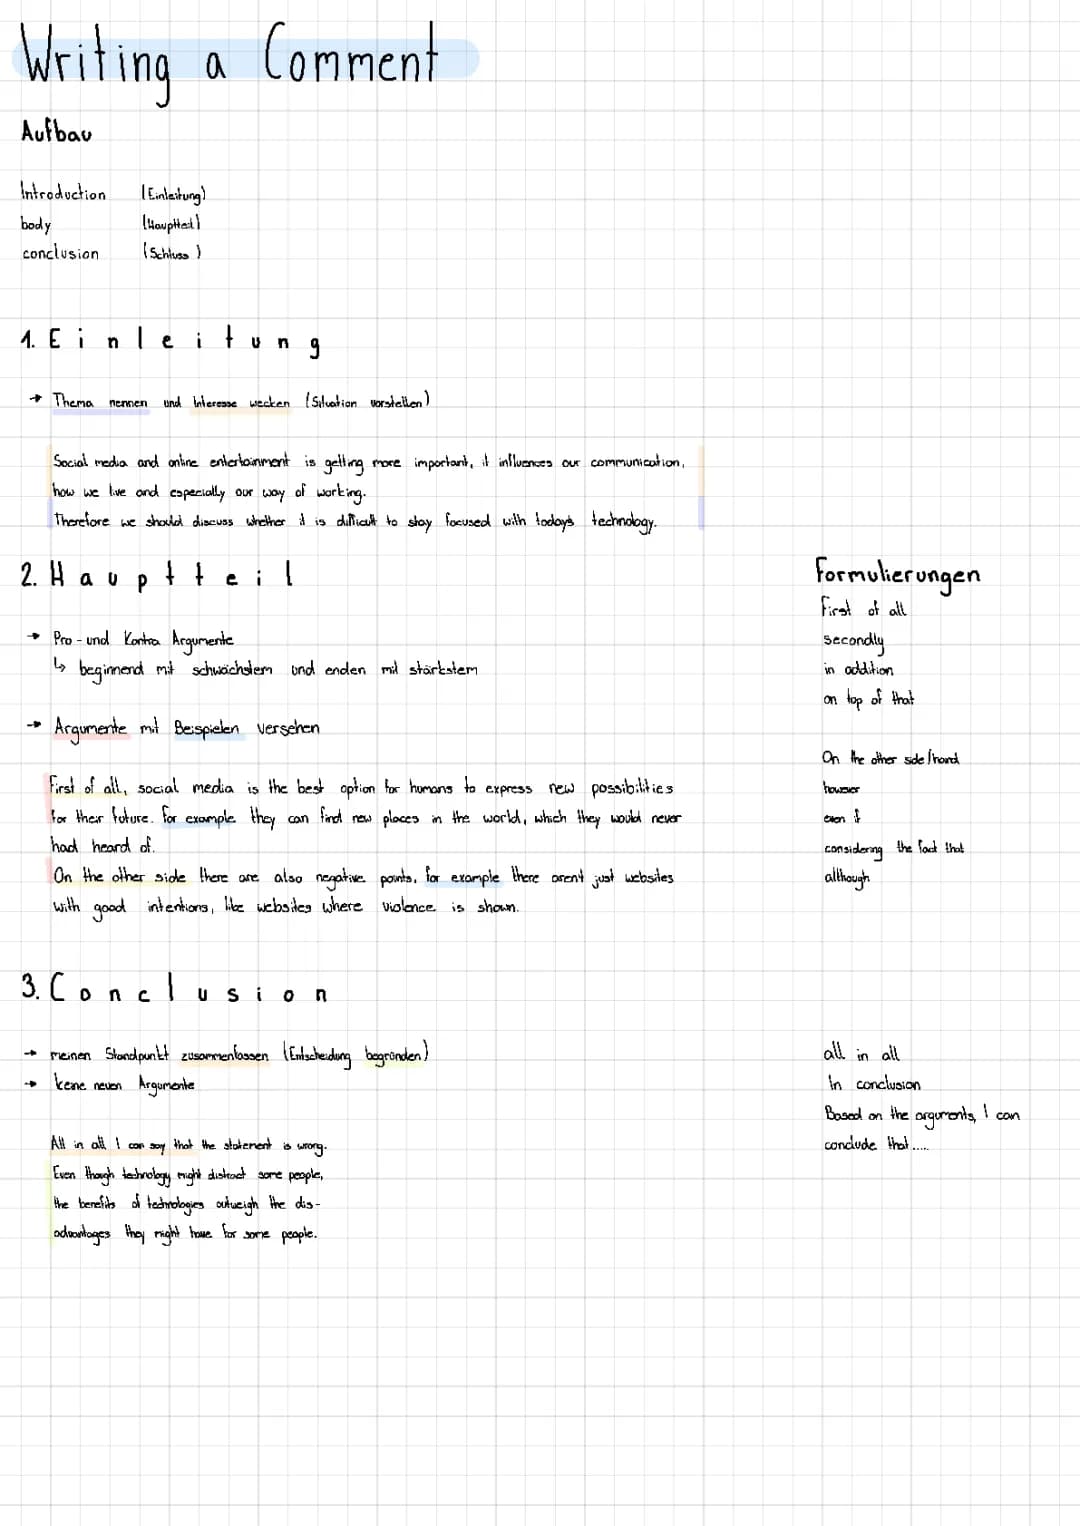 Writing a Comment
Aufbau
Introduction (Einleitung)
body (Hauptteil)
conclusion (Schluss)
1. Einleitung
→ Thema nennen und Interesse wecken (Situation vorstellen)
Social media and online entertainment is getting more important, it influences our communication,
how we live and especially our way of working.
Therefore we should discuss whether it is difficult to stay focused with todays technology.
2. Hauptteil
→ Pro- und Kontra Argumente
↳ beginnend mit schwächstem und enden mit stärkstem
→ Argumente mit Beispielen versehen
First of all, social media is the best option for humans to express new possibilities
for their future. For example they can find new places in the world, which they would never
had heard of.
On the other side there are also negative points, for example there arent just websites
with good intentions, like websites where violence is shown.
Formulierungen
First of all
secondly
in addition
on top of that
On the other side/hand
however
even if
considering the fact that
although
3. Conclusion
→ meinen Standpunkt zusammenfassen (Entscheidung begründen)
→ keine neuen Argumente
All in all I can say that the statement is wrong.
Even though technology might distract some people,
the benefits of technologies outweigh the dis-
advantages they might have for some people.
all in all
In conclusion
Based on the arguments, I can
conclude that.....